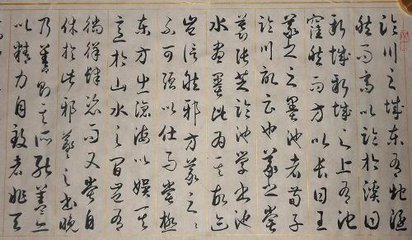 臨川之城東有地隱
然而高以臨於溪曰
新城新城之上有池
窪然而方以長曰王
羲之之墨池者荀子
臨川記云也羲之嘗
慕張芝臨池學書池
水盡黑此為其故迹
豈信然邪方羲之之
不可強以仕而嘗極
東方出滄海以娛其
意於山水之間豈有
徜徉肆恣而又嘗自
休於此邪羲之之書晚
乃善則其所能蓋亦
以精力自致者非天